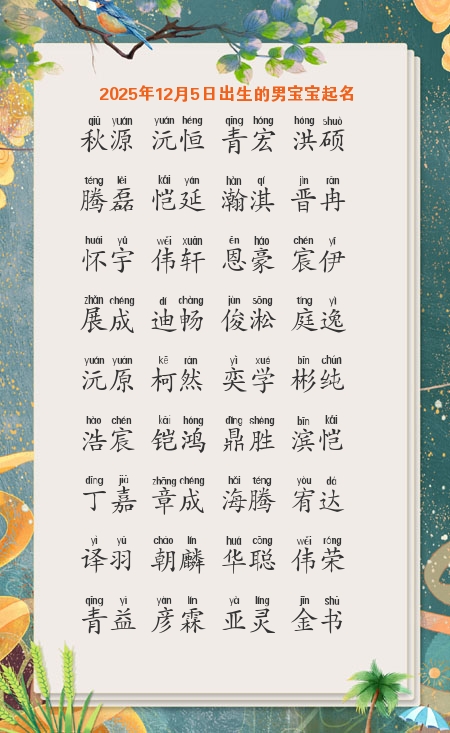 2025年12月5日出生的男宝宝起名
qiū yuán yuán héng qīng hóng hóng shuò
秋源 沅恒 青宏 洪硕
téng lěi kǎi yán hàn qí jìn rǎn
腾磊 恺延 瀚淇 晋冉
huái yǔ wěi xuān ēn háo chén yī
怀宇 伟轩 恩豪 宸伊
zhǎn chéng dí chàng jùn sōng tíng yì
展成 迪畅 俊淞 庭逸
yuán yuán kē rán yì xué bīn chún
沅原 柯然 奕学 彬纯
hào chén kǎi hóng dǐng shèng bīn kǎi
浩宸 铠鸿 鼎胜 滨恺
dīng jiā zhāng chéng hǎi téng yòu dá
丁嘉 章成 海腾 宥达
yì yǔ cháo lín huá cōng wěi róng
译羽 朝麟 华聪 伟荣
qīng yì yàn lín yà líng jīn shū
青益 彦霖 亚灵 金书